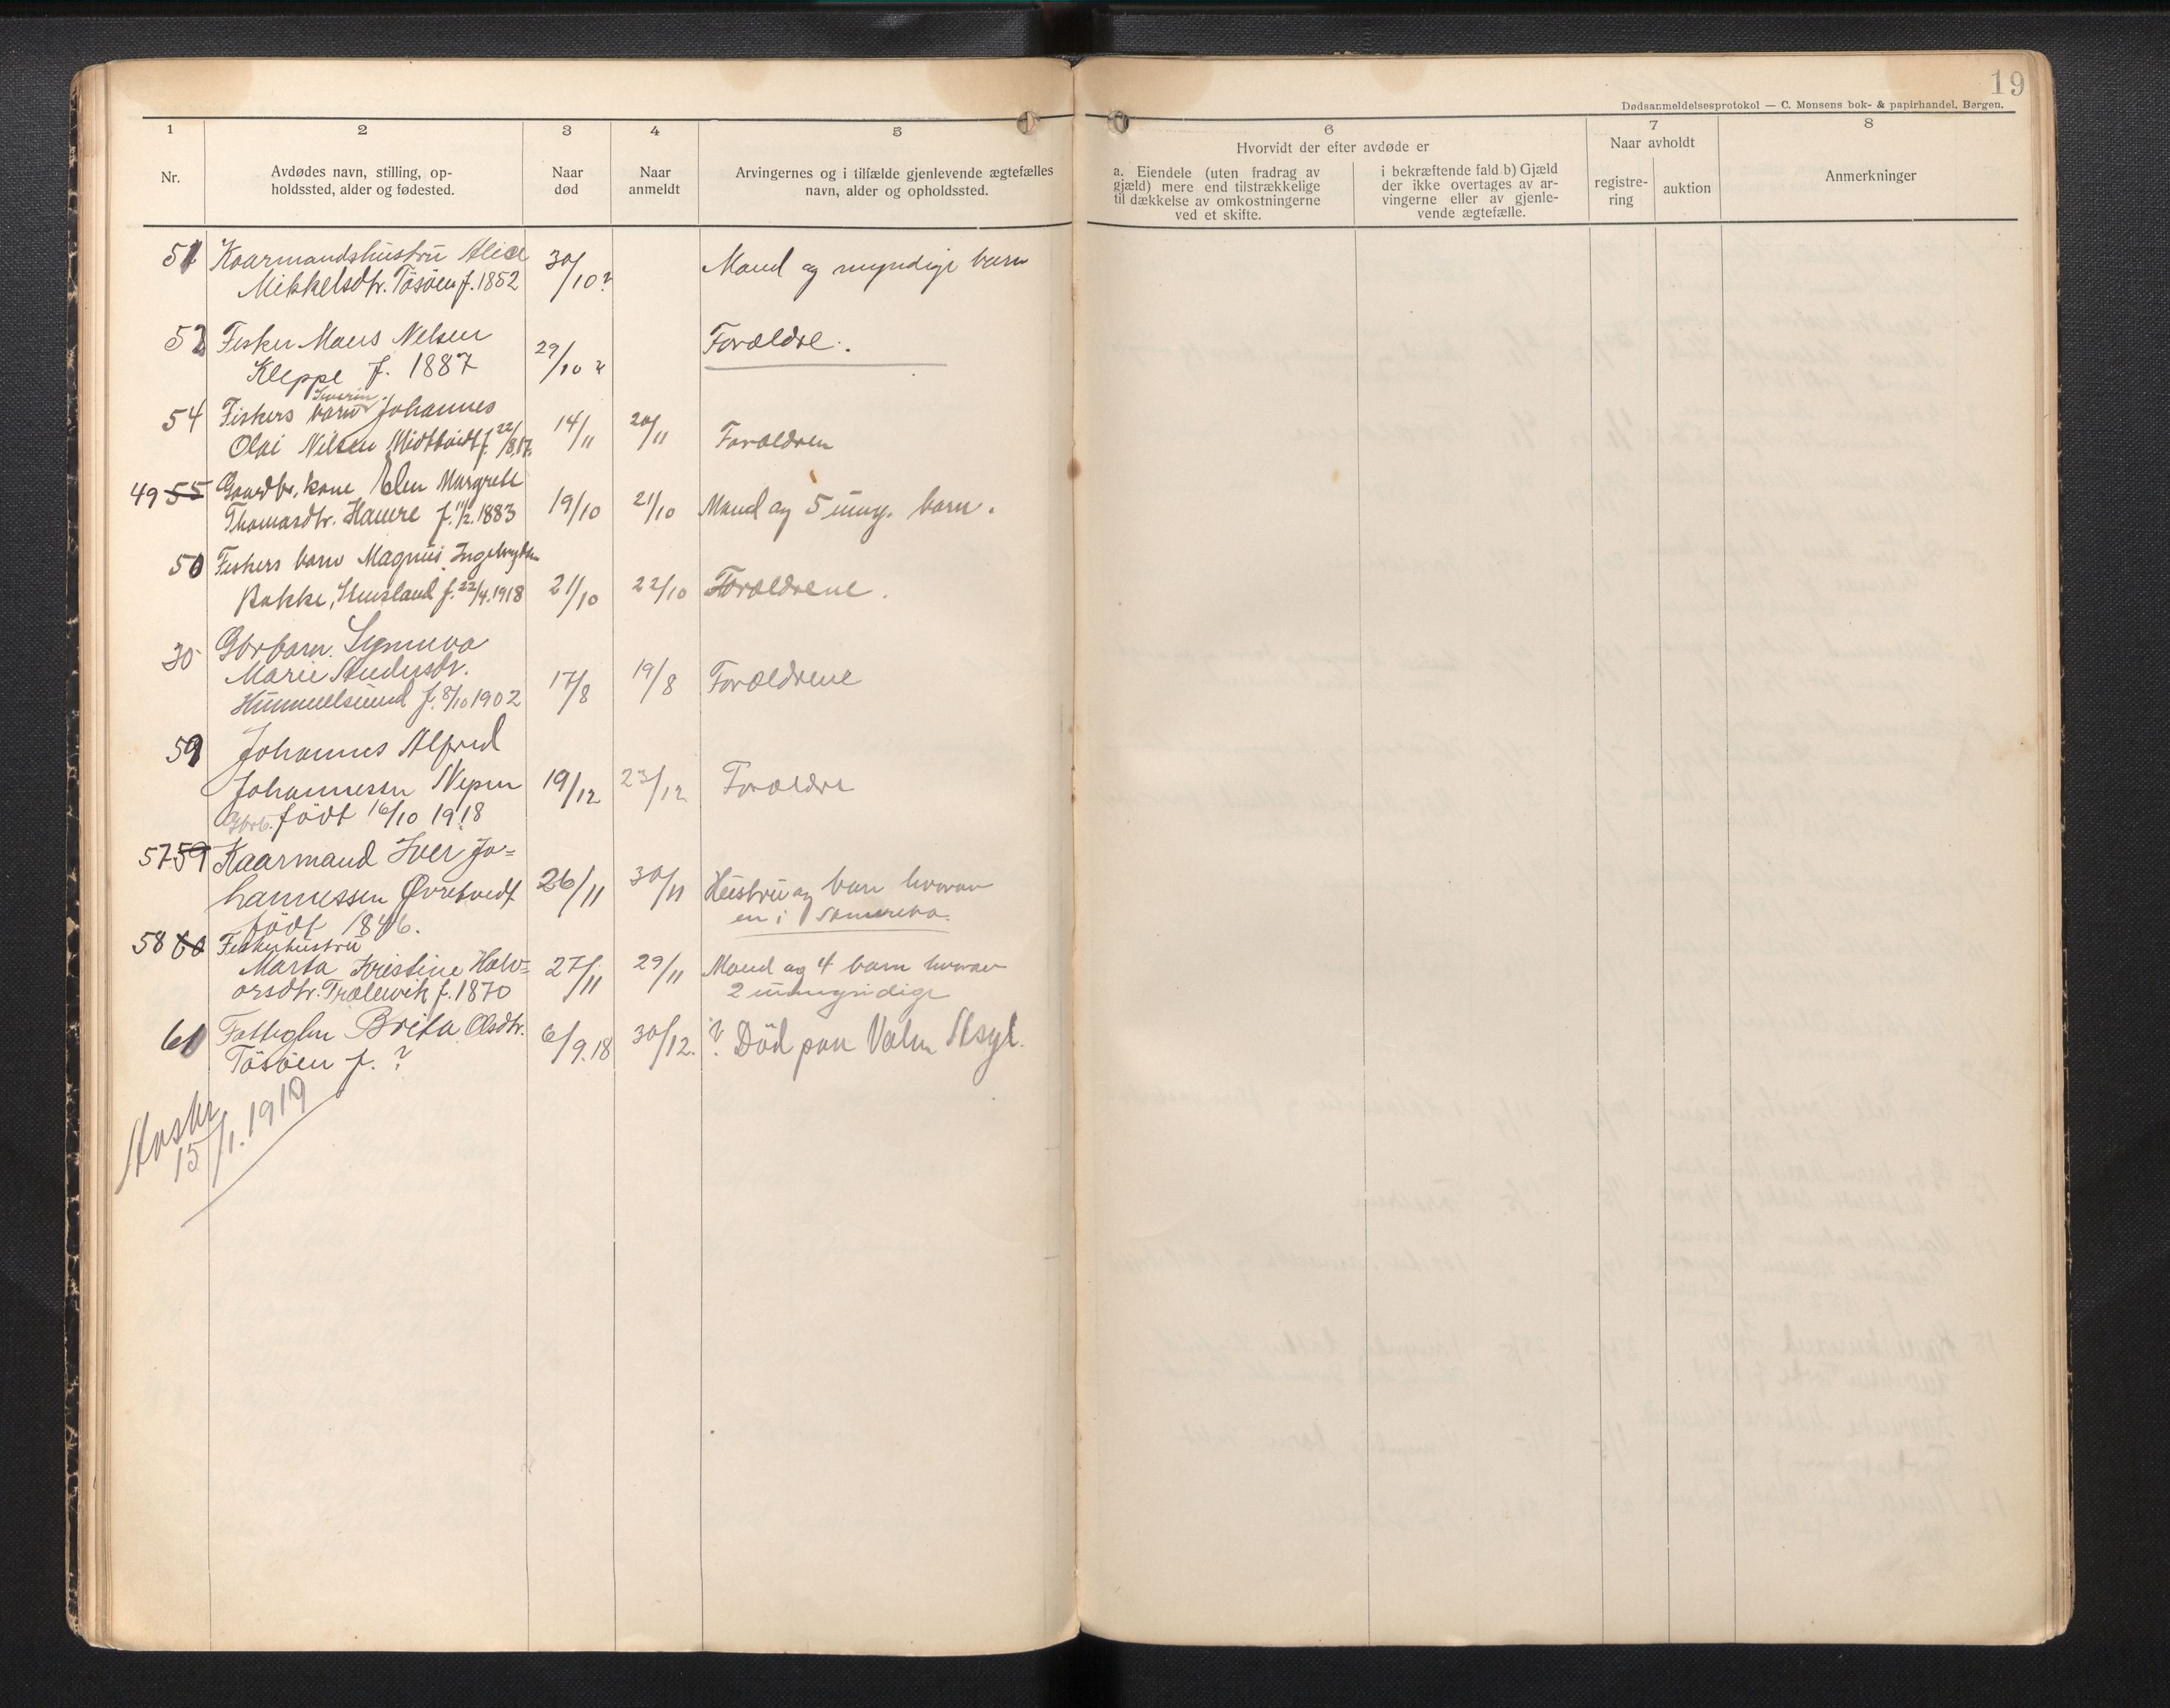 19
Dødsanmeldelsesprotokol — C. Monsens bok- & papirhandel, Bergen.
1
2
3
4
5
6
7
8
Nr.
Avdødes navn, stilling, op-
holdssted, alder og fødested.
Naar
død
Naar
anmeldt
Arvingernes og i tilfælde gjenlevende ægtefælles
navn, alder og opholdssted.
Hvorvidt der efter avdøde er
a. Eiendele (uten fradrag av
gjæld) mere end tilstrækkelige
til dækkelse av omkostningerne
ved et skifte.
i bekræftende fald b) Gjæld
der ikke overtages av ar-
vingerne eller av gjenle-
vende ægtefælle.
Naar avholdt
registre-
ring
auktion
Anmerkninger
51 Kaarmandshustru
Mikkelsdtr. Tösöen f. 1852
30/10 ?
Mand og myndige barn
52 Fisker Mons Nelsen
Kleppe f. 1887
29/10
Forældre.
54 Fiskers barn Severin Johannes
Olai Nilsen Midttveidt f. 22/8.17.
14/11
20/11
Forældren
49 55 Gaardbr. kone Elen Margrete
Thomasdtr. Haure f. 11/2. 1883
19/10
21/10
Mand og 5 umy. barn.
50 Fiskers barn Magnus
Bakke, f. 22/4. 1918
21/10
22/10
Forældrene.
30 Gbrbarn. Synneva
Marie
Hummelsund f. 8/10 1902
17/8
19/8
Forældrene
59 Johannes Alfred
Johannesen Vepen
Gbrb. födt 16/10 1918
19/12
23/12
Forældre
57 59 Kaarmand Iver Jo=
hannessen Øvretvedt
födt 1846.
26/11
30/11
Hustru og barn hvorav
en i Amerika.
58 60 Fiskerhustru
Marta Kristine Halv=
orsdtr. Trælevik f. 1870
27/11
29/11
Mand og 4 barn hvorav
2 umyndige
61 Fattiglem Brita Olsdtr.
Tösöen f. ?
6/9.18
30/12.
? Död paa Valen Asyl.
Avskr
15/1. 1919